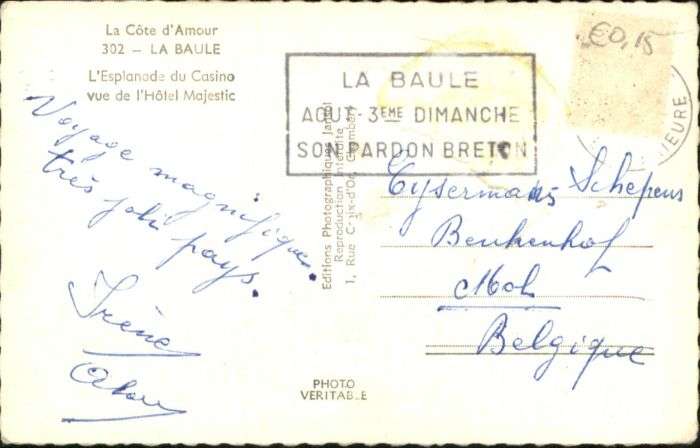 La Côte d'Amour
302 - LA BAULE
L'Esplanade du Casino
vue de l'Hôtel Majestic
€0,15
LA BAULE
AOUT-3EME DIMANCHE
SON PARDON BRETON
IEURE
Voyage magnifique.
très joli pays.
Irène
Editions Photographiques
Reproduction Interdite
1, Rue d'Or,
Eysermans Schepens
Beukenhof
Mol
Belgique
PHOTO
VERITABLE